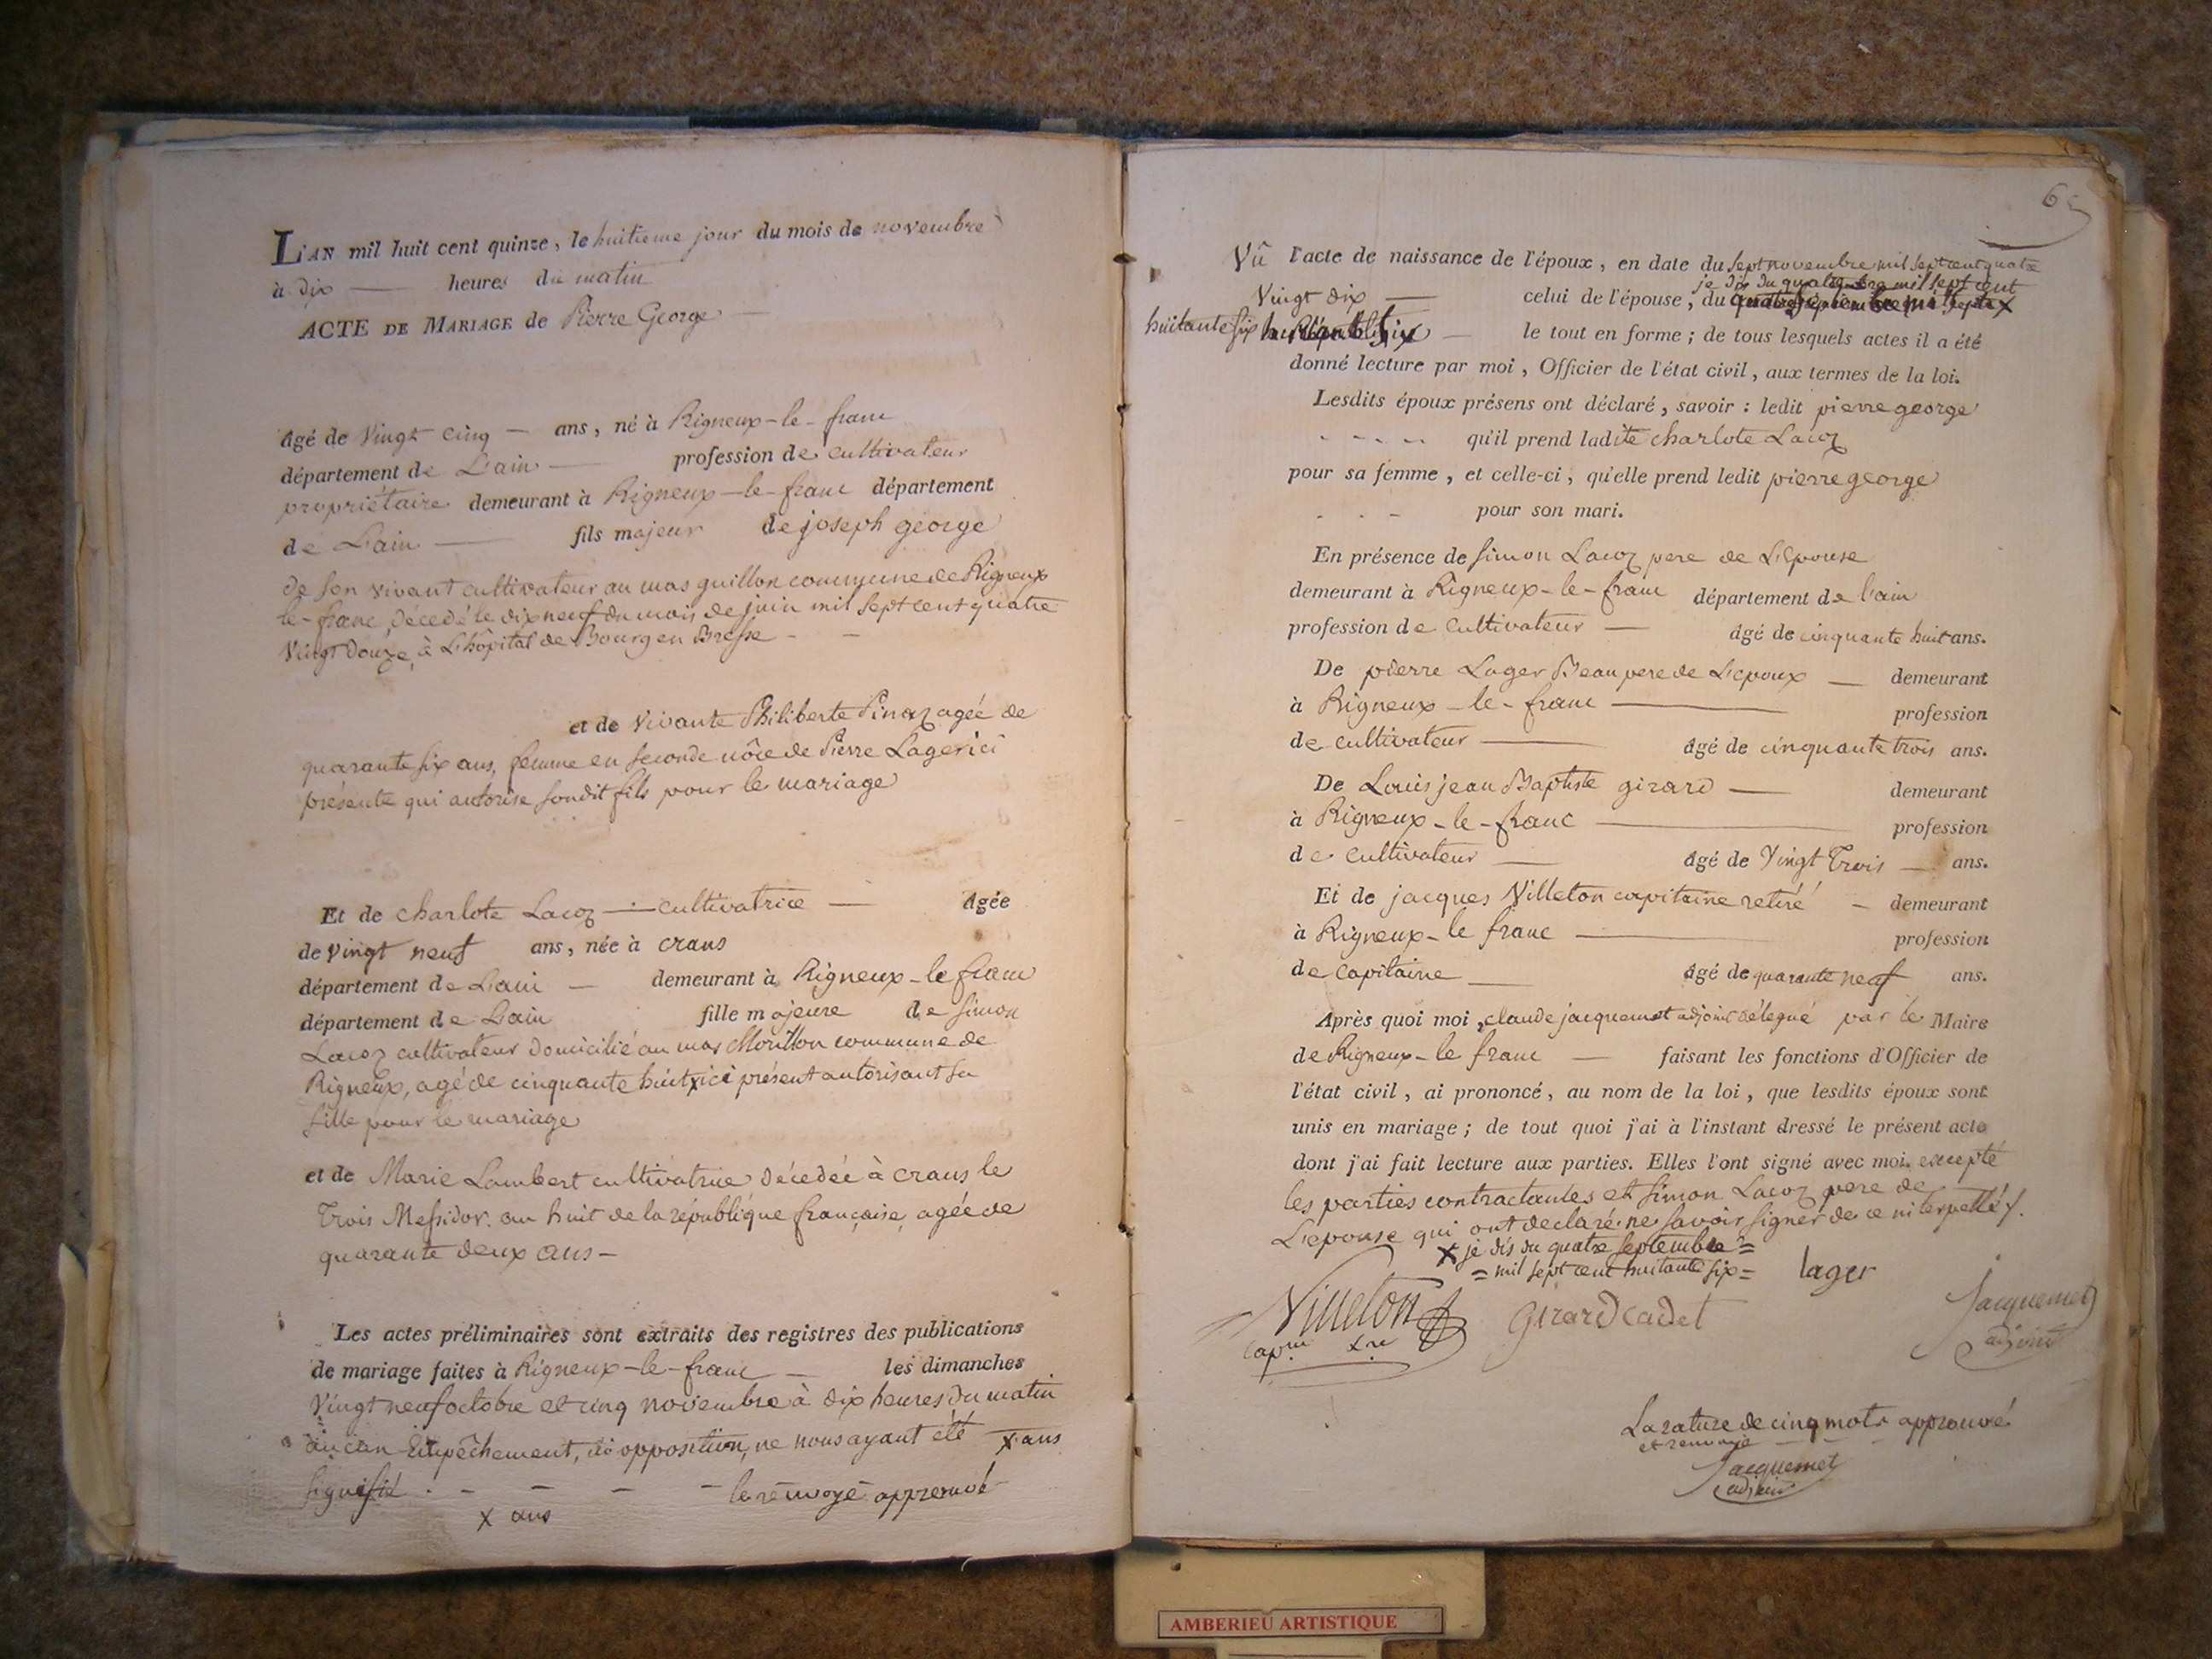 L'AN mil huit cent quinze, le huitieme jour du mois de novembre
à dix — heures du matin
ACTE DE MARIAGE de Pierre George —
âgé de Vingt cinq — ans, né à Rigneux-le-franc
département de L'ain — profession de cultivateur
propriétaire demeurant à Rigneux-le-franc département
de L'ain — fils majeur de joseph george
de son vivant cultivateur au mas guillon commune de Rigneux
le-franc, décedé le dix neuf du mois de juin mil sept cent quatre
Vingt Douze, à L'hôpital de Bourg en Bresse - -
et de Vivante Philiberte Pinaz agée de
quarante six ans, femme en seconde nôce de Pierre Lager ici
présente qui autorise sondit fils pour le mariage
Et de charlote Lacoz — cultivatrice — âgée
de vingt neuf ans, née à crans
département de L'ain — demeurant à Rigneux-le franc
département de L'ain fille majeure de Simon
Lacoz cultivateur domicilié au mas Morillon commune de
Rigneux, agé de cinquante huit x ici présent autorisant sa
fille pour le mariage
et de Marie Lambert cultivatrice décedée à crans le
Trois Messidor an huit de la républiqe française, agée de
quarante deux ans —
Les actes préliminaires sont extraits des registres des publications
de mariage faites à Rigneux-le-franc — les dimanches
Vingt neuf octobre et cinq novembre à dix heures du matin
aucun Empêchement, ni opposition, ne nous ayant été x ans
signifié . - - - - le renvoyé approuvé
x ans
65
Vû l'acte de naissance de l'époux, en date du sept novembre mil sept cent quatre
je dis du quatre mil sept cent
Vingt dix — celui de l'épouse, du quatre septembre mil sept x
huitante six — le tout en forme; de tous lesquels actes il a été
donné lecture par moi, Officier de l'état civil, aux termes de la loi.
Lesdits époux présens ont déclaré, savoir : ledit pierre george
- - - - qu'il prend ladite charlote Lacoz
pour sa femme, et celle-ci, qu'elle prend ledit pierre george
- - - pour son mari.
En présence de Simon Lacoz pere de L'Epouse
demeurant à Rigneux-le-franc département de l'ain
profession de Cultivateur — âgé de cinquante huit ans.
De pierre Lager Beau pere de L'epoux — demeurant
à Rigneux-le-franc — profession
de cultivateur — âgé de cinquante trois ans.
De Louis jean Baptiste girard — demeurant
à Rigneux-le-franc — profession
de Cultivateur — âgé de Vingt Trois — ans.
Et de jacques Villeton capitaine retiré — demeurant
à Rigneux-le franc — profession
de capitaine — âgé de quarante neuf ans.
Après quoi moi, claude jacquemet adjoint délegué par le Maire
de Rigneux-le franc — faisant les fonctions d'Officier de
l'état civil, ai prononcé, au nom de la loi, que lesdits époux sont
unis en mariage; de tout quoi j'ai à l'instant dressé le présent acte
dont j'ai fait lecture aux parties. Elles l'ont signé avec moi. excepté
les parties contractantes et Simon Lacoz pere de
L'epouse qui ont declaré ne savoir signer de ce interpellés.
x je dis du quatre Septembre =
= mil sept cent huitante six = lager
Villeton Girard Cadet Jacquemet
adjoint
La rature de cinq mots approuvé
et renvoye
Jacquemet
adjoint
AMBERIEU ARTISTIQUE